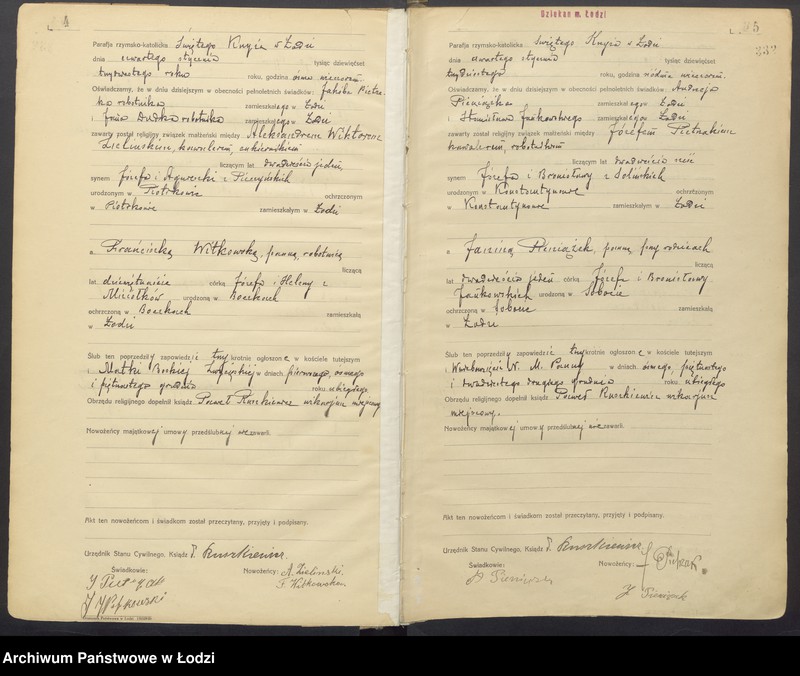 4
Parafja rzymsko-katolicka Świętego Krzyża w Łodzi
dnia czwartego stycznia tysiąc dziewięćset
trzydziestego roku roku, godzina ósma wieczorem.
Oświadczamy, że w dniu dzisiejszym w obecności pełnoletnich świadków: Jakóba
robotnika zamieszkałego w Łodzi
i robotnika zamieszkałego w Łodzi
zawarty został religijny związek małżeński między Aleksandrem Wiktorem
Zielińskim, kawalerem, cukiernikiem
liczącym lat dwadzieścia jeden,
synem Józefa i Agnieszki z
urodzonym w Piotrkowie ochrzczonym
w Piotrkowie zamieszkałym w Łodzi
a Franciszką Witkowską, panną, robotnicą
liczącą
lat dziewiętnaście córką Józefa i Heleny z
urodzoną w
ochrzczoną w zamieszkałą
w Łodzi
Ślub ten poprzedziły zapowiedzie trzykrotnie ogłoszone w kościele tutejszym
i Matki Boskiej Zwycięskiej w dniach pierwszego, ósmego
i piętnastego grudnia roku ubiegłego
Obrzędu religijnego dopełnił ksiądz Paweł Ruszkiewicz wikarjusz miejscowy
Nowożeńcy majątkowej umowy przedślubnej nie zawarli.
Akt ten nowożeńcom i świadkom został przeczytany, przyjęty i podpisany.
Urzędnik Stanu Cywilnego, Ksiądz P. Ruszkiewicz
Świadkowie: Nowożeńcy: A. Zieliński
F. Witkowska
Dziekan m. Łodzi
5
Parafja rzymsko-katolicka Świętego Krzyża w Łodzi
dnia czwartego stycznia tysiąc dziewięćset
trzydziestego roku, godzina siódma wieczorem.
Oświadczamy, że w dniu dzisiejszym w obecności pełnoletnich świadków: Andrzeja
Pieniążka zamieszkałego w Łodzi
i Stanisława Jańkowskiego zamieszkałego w Łodzi
zawarty został religijny związek małżeński między Józefem Pietrzakiem
kawalerem, robotnikiem
liczącym lat dwadzieścia
synem Józefa i Bronisławy z Solińskich
urodzonym w Konstantynowie ochrzczonym
w Konstantynowie zamieszkałym w Łodzi
a Janiną Pieniążek, panną, przy rodzicach
liczącą
lat dwadzieścia jeden córką Józefa i Bronisławy
Jańkowskich urodzoną w Sobocie
ochrzczoną w Sobocie zamieszkałą
w Łodzi
Ślub ten poprzedziły zapowiedzie trzykrotnie ogłoszone w kościele tutejszym
i Wniebowzięcia N. M. Panny w dniach ósmego, piętnastego
i dwudziestego drugiego grudnia roku ubiegłego
Obrzędu religijnego dopełnił ksiądz Paweł Ruszkiewicz wikarjusz
miejscowy.
Nowożeńcy majątkowej umowy przedślubnej nie zawarli.
Akt ten nowożeńcom i świadkom został przeczytany, przyjęty i podpisany.
Urzędnik Stanu Cywilnego, Ksiądz P. Ruszkiewicz
Świadkowie: Nowożeńcy: J. Pietrzak
J Pieniążek
Archiwum Państwowe w Łodzi